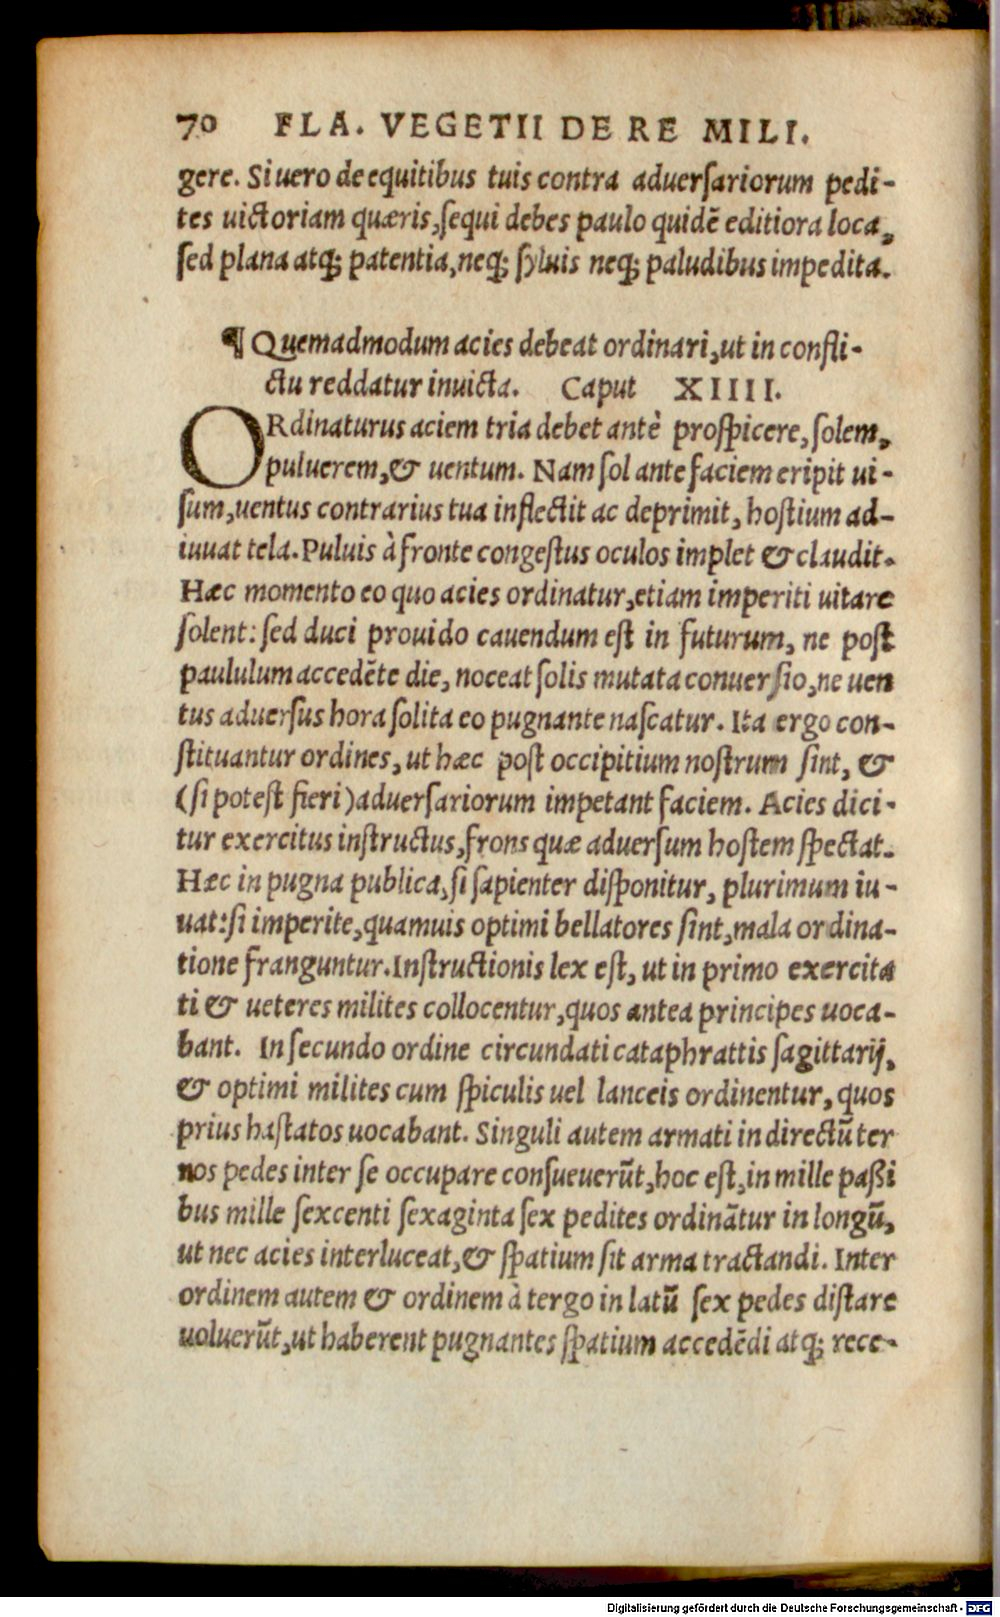 70 FLA. VEGETII DE RE MILI.
gere. Si uero de equitibus tuis contra aduerſariorum pedi-
tes uictoriam quæris, ſequi debes paulo quidē editiora loca,
ſed plana atq; patentia, neq; ſyluis neq; paludibus impedita.
¶ Quemadmodum acies debeat ordinari, ut in confli-
ctu reddatur inuicta. Caput XIIII.
ORdinaturus aciem tria debet antè proſpicere, ſolem,
puluerem, & uentum. Nam ſol ante faciem eripit ui-
ſum, uentus contrarius tua inflectit ac deprimit, hoſtium ad-
iuuat tela. Puluis à fronte congeſtus oculos implet & claudit.
Hæc momento eo quo acies ordinatur, etiam imperiti uitare
ſolent: ſed duci prouido cauendum eſt in futurum, ne poſt
paululum accedēte die, noceat ſolis mutata conuerſio, ne uen
tus aduerſus hora ſolita eo pugnante naſcatur. Ita ergo con-
ſtituantur ordines, ut hæc poſt occipitium noſtrum ſint, &
(ſi poteſt fieri) aduerſariorum impetant faciem. Acies dici-
tur exercitus inſtructus, frons quæ aduerſum hoſtem ſpectat.
Hæc in pugna publica, ſi ſapienter diſponitur, plurimum iu-
uat: ſi imperite, quamuis optimi bellatores ſint, mala ordina-
tione franguntur. Inſtructionis lex eſt, ut in primo exercita
ti & ueteres milites collocentur, quos antea principes uoca-
bant. In ſecundo ordine circundati cataphrattis ſagittarij,
& optimi milites cum ſpiculis uel lanceis ordinentur, quos
prius haſtatos uocabant. Singuli autem armati in directū ter
nos pedes inter ſe occupare conſueuerūt, hoc eſt, in mille paßi
bus mille ſexcenti ſexaginta ſex pedites ordinātur in longū,
ut nec acies interluceat, & ſpatium ſit arma tractandi. Inter
ordinem autem & ordinem à tergo in latū ſex pedes diſtare
uoluerūt, ut haberent pugnantes ſpatium accedēdi atq; rece-
Digitalisierung gefördert durch die Deutsche Forschungsgemeinschaft - DFG